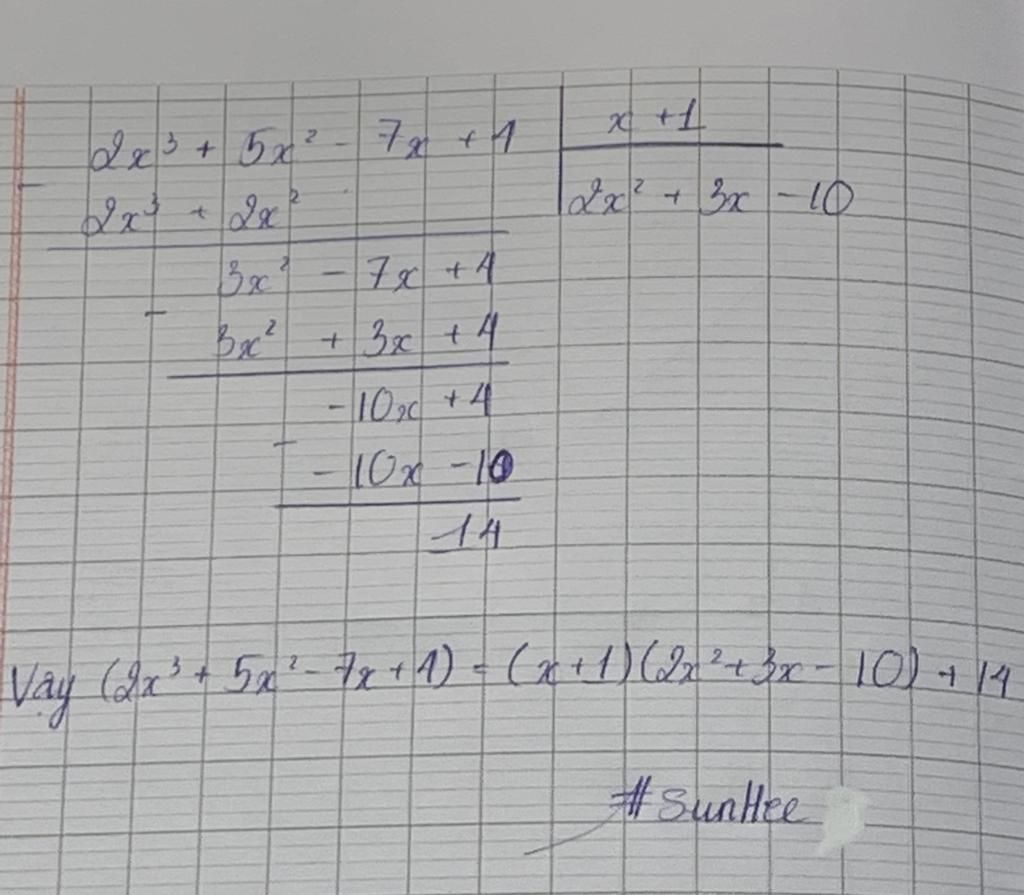 2x³ + 5x² - 7x + 4 | x + 1
- 2x³ + 2x² | 2x² + 3x - 10
3x² - 7x + 4
- 3x² + 3x + 4
-10x + 4
- -10x - 10
14
Vậy (2x³ + 5x² - 7x + 4) = (x + 1)(2x² + 3x - 10) + 14
#SunHee